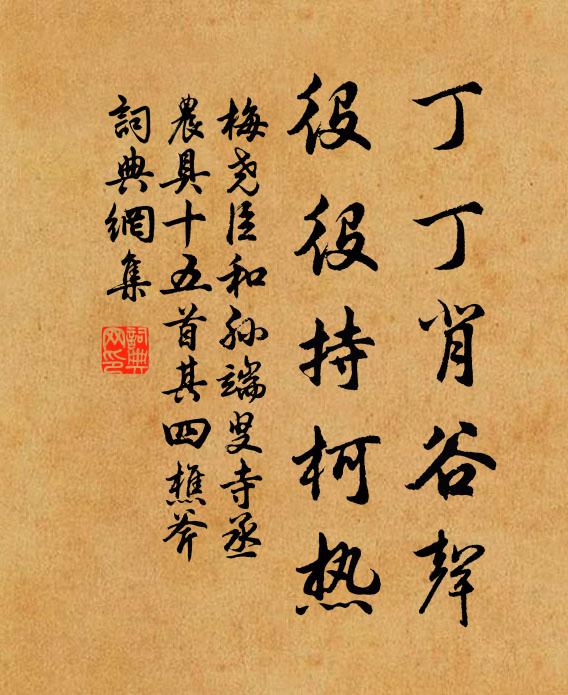 丁丁肖谷聲
役役持柯热
梅尧臣和孙端叟寺丞
農具十五首其四樵斧
詞典網集
詞典网印